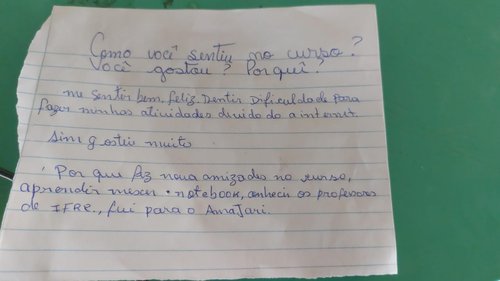 Como você sentiu no curso?
Você gostou? Porquê?
me sentir bem, feliz. Sentir Dificuldade para
fazer minhas atividades devido do a internet
Sim gostei muito
Por que fez nova amizades no curso,
aprendir mexer notebook, conhecir os professores
do IFRR., fui para o Amajari.